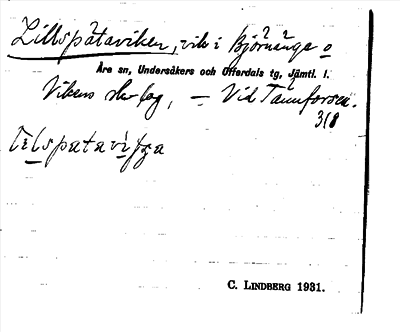 Lillspåtaviken, vik i Björnänge o
Åre sn, Undersåkers och Offerdals tg, Jämtl. l.
Vikens skog, – Vid Tännforsen.
3/8
C. LINDBERG 1931.